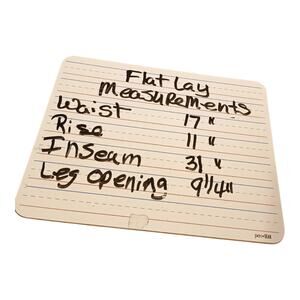 Flat Lay
measuRements
Waist 17 "
Rise 11 "
Inseam 31 "
Leg opening 9 1/4"